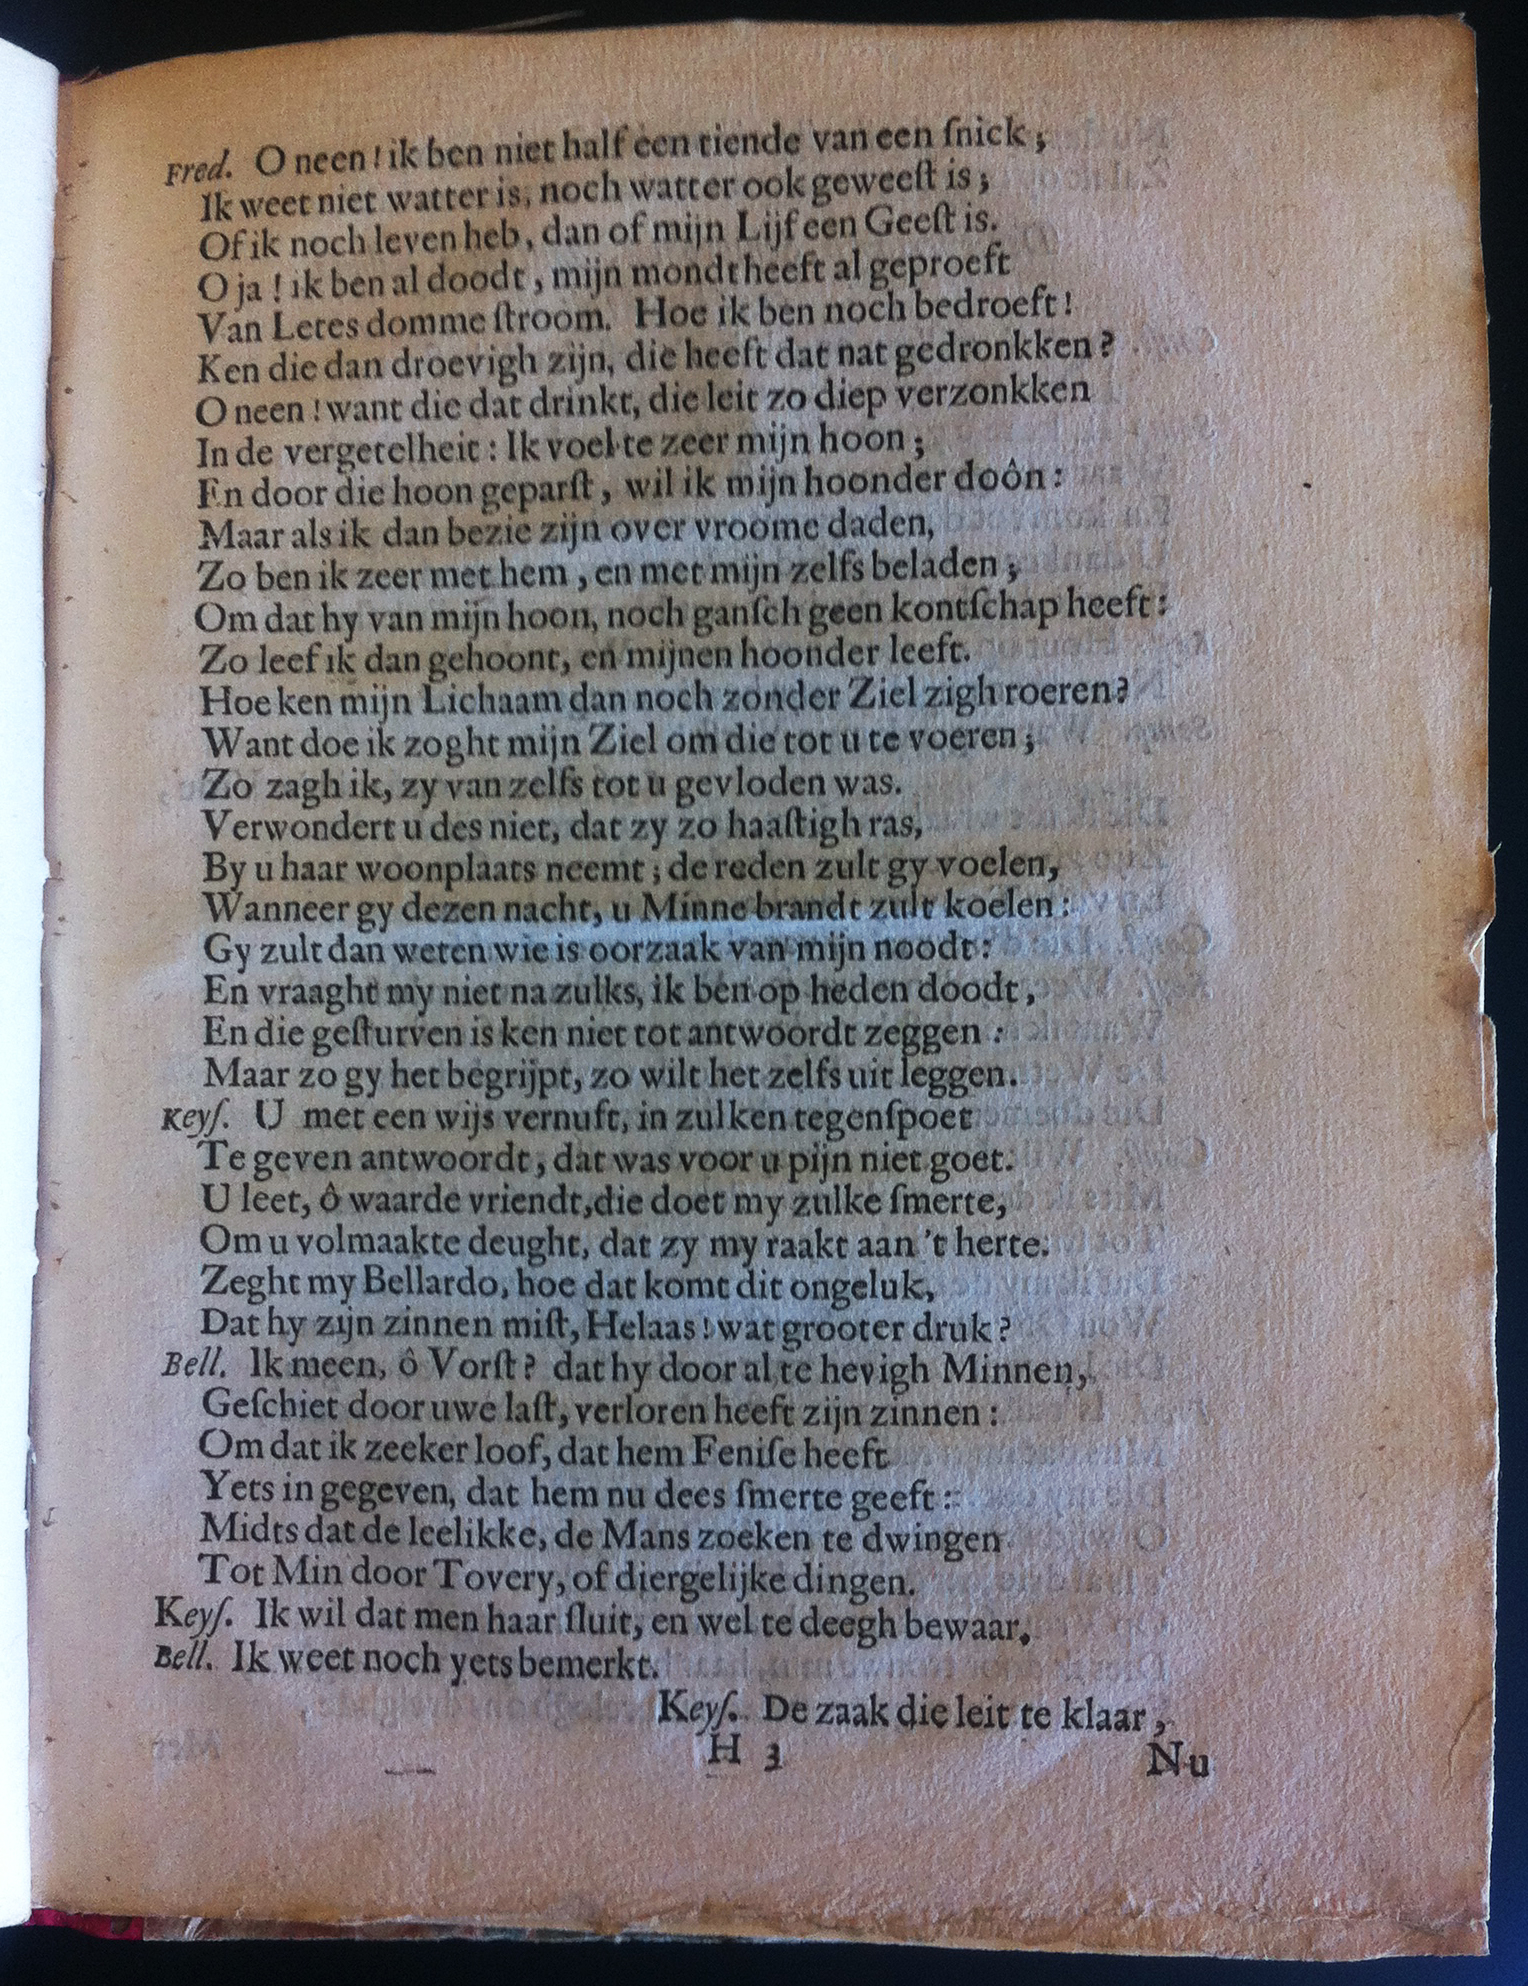 Fred. O neen! ik ben niet half een tiende van een ſnick;
Ik weet niet watter is, noch watter ook geweeſt is;
Of ik noch leven heb, dan of mijn Lijf een Geeſt is.
O ja! ik ben al doodt, mijn mondt heeft al geproeft
Van Letes domme ſtroom. Hoe ik ben noch bedroeft!
Ken die dan droevigh zijn, die heeft dat nat gedronkken?
O neen! want die dat drinkt, die leit zo diep verzonkken
In de vergetelheit: Ik voel te zeer mijn hoon;
En door die hoon geparſt, wil ik mijn hoonder doôn:
Maar als ik dan bezie zijn over vroome daden,
Zo ben ik zeer met hem, en met mijn zelfs beladen;
Om dat hy van mijn hoon, noch ganſch geen kontſchap heeft:
Zo leef ik dan gehoont, en mijnen hoonder leeft.
Hoe ken mijn Lichaam dan noch zonder Ziel zigh roeren?
Want doe ik zoght mijn Ziel om die tot u te voeren;
Zo zagh ik, zy van zelfs tot u gevloden was.
Verwondert u des niet, dat zy zo haaſtigh ras,
By u haar woonplaats neemt; de reden zult gy voelen,
Wanneer gy dezen nacht, u Minne brandt zult koelen:
Gy zult dan weten wie is oorzaak van mijn noodt:
En vraaght my niet na zulks, ik ben op heden doodt,
En die geſturven is ken niet tot antwoordt zeggen:
Maar zo gy het begrijpt, zo wilt het zelfs uit leggen.
Keyſ. U met een wijs vernuft, in zulken tegenſpoet
Te geven antwoordt, dat was voor u pijn niet goet.
U leet, ô waarde vriendt, die doet my zulke ſmerte,
Om u volmaakte deught, dat zy my raakt aan 't herte.
Zeght my Bellardo, hoe dat komt dit ongeluk,
Dat hy zijn zinnen miſt, Helaas! wat grooter druk?
Bell. Ik meen, ô Vorſt? dat hy door al te hevigh Minnen,
Geſchiet door uwe laſt, verloren heeft zijn zinnen:
Om dat ik zeeker loof, dat hem Feniſe heeft
Yets in gegeven, dat hem nu dees ſmerte geeft:
Midts dat de leelikke, de Mans zoeken te dwingen
Tot Min door Tovery, of diergelijke dingen.
Keyſ. Ik wil dat men haar ſluit, en wel te deegh bewaar.
Bell. Ik weet noch yets bemerkt.
Keyſ. De zaak die leit te klaar,
H 3
Nu